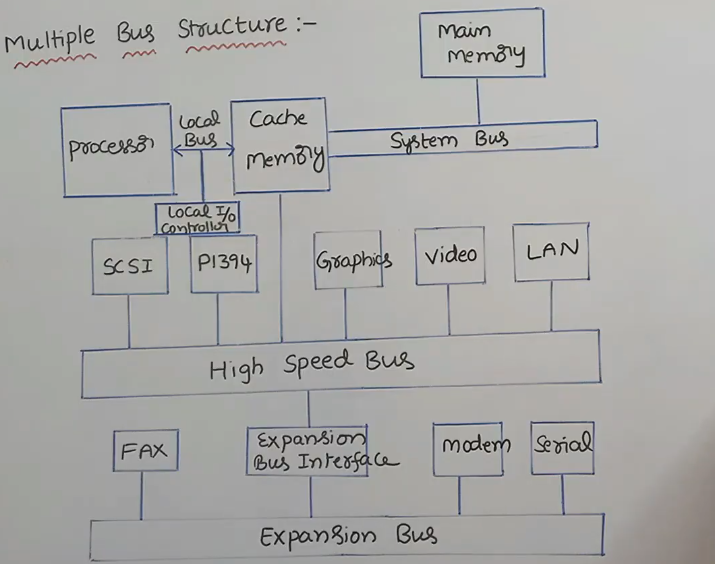 Multiple Bus Structure :-
Main
Memory
Processor
Local
Bus
Cache
Memory
System Bus
Local I/o
controller
SCSI
P1394
Graphics
Video
LAN
High Speed Bus
FAX
Expansion
Bus Interface
Modem
Serial
Expansion Bus